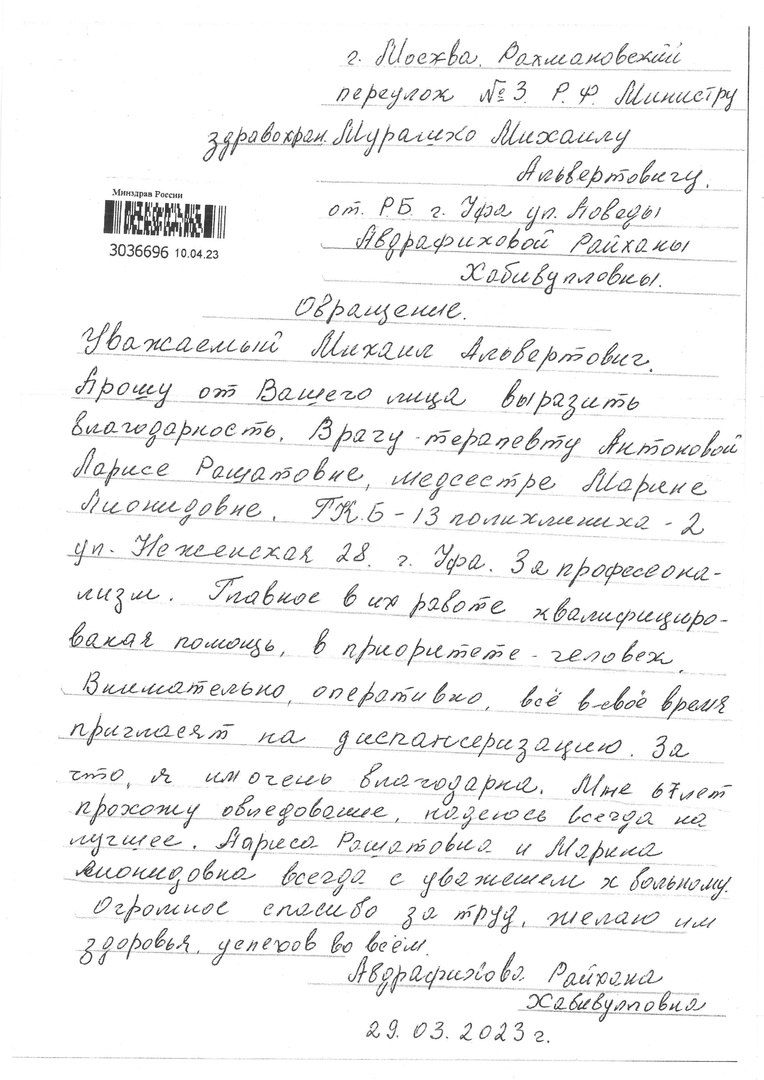 г. Москва. Рахмановский
переулок №3. Р.Ф. Министру
здравохран. Мурашко Михаилу
Альбертовичу.
Минздрав России
3036696 10.04.23
от. Р.Б. г. Уфа ул. Победы
Абдрафиковой Райханы
Хабибулловны.
Обращение.
Уважаемый Михаил Альбертович.
Прошу от Вашего лица выразить
благодарность. Врачу-терапевту Антоновой
Ларисе Рашатовне, медсестре Марине
Лионидовне. ГК.Б-13 поликлиника-2
ул. Неженская 28. г. Уфа. За професеона-
лизм. Главное в их работе квалифициро-
ваная помощь, в приоритете-человек.
Внимательно, оперативно, всё в своё время
пригласят на диспансеризацию. За
что, я им очень благодарна. Мне 67лет
прохожу обследование, надеюсь всегда на
лучшее. Лариса Рашатовна и Марина
Лионидовна всегда с уважением к больному.
Огромное спасибо за труд, желаю им
здоровья, успехов во всём.
Абдрафикова Райхана
Хабибулловна
29.03.2023 г.